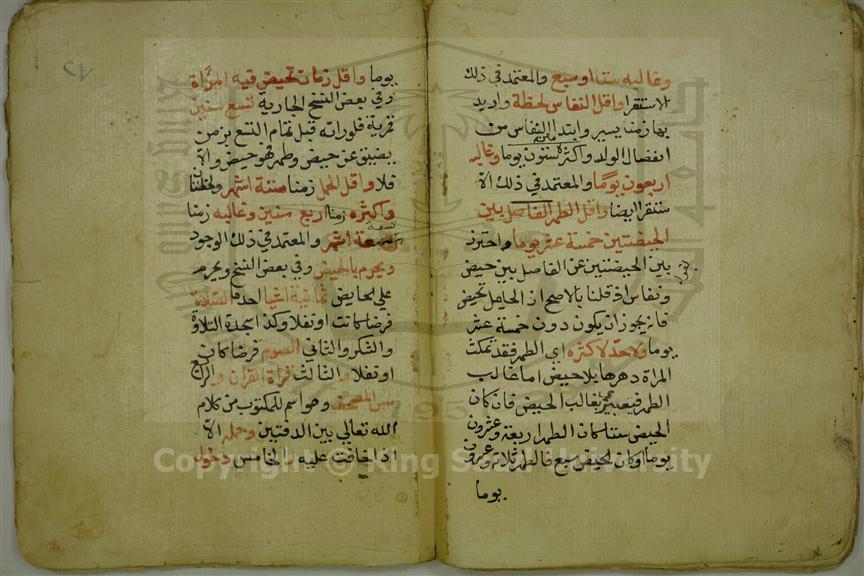 وغالبه ستا اوسبع والمعتمد في ذلك
الاستقرا واقل النفاس لحظة واريد
بها زمنا يسير وابتدا النفاس من
انفصال الولد واكثره ستون يوما وغالبه
اربعون يوما والمعتمد في ذلك الا
ستقرا ايضا واقل الطهر الفاصل بين
الحيضتين خمسة عشر يوما واحترز
بين الحيضتين عن الفاصل بين حيض
ونفاس اذ قلنا بالاصح ان الحامل تحيض
فانه يجوز ان يكون دون خمسة عشر
يوما ولاحد لاكثره اي الطهر فقد تمكث
المراة دهرها بلا حيض اما غالب
الطهر فيعتبر بغالب الحيض فان كان
الحيض ستا كان الطهر اربعة وعشرون
يوما وكان الحيض سبع فالطهر ثلاثة وعشرون
يوما
١٢
يوما واقل زمان تحيض فيه المرأة
وفي بعض النسخ الجارية تسع سنين
قمرية فلو راته قبل تمام التسع بزمن
يضيق عن حيض وطهر فهو حيض والا
فلا واقل الحمل زمنا ستة اشهر ولحظتان
واكثره زمنا اربع سنين وغالبه زمنا
تسعة اشهر والمعتمد في ذلك الوجود
ويحرم بالحيض وفي بعض النسخ ويحرم
علي الحايض ثمانية اشيا احدها الصلاة
فرضا كانت او نفلا وكذا سجدة التلاوة
والشكر والثاني الصوم فرضا كان
او نفلا والثالث قراة القران والرابع
مس المصحف وهو اسم للمكتوب من كلام
الله تعالي بين الدفتين وحمله الا
اذا خافت عليه والخامس دخول
Copyright © King Saud University
195